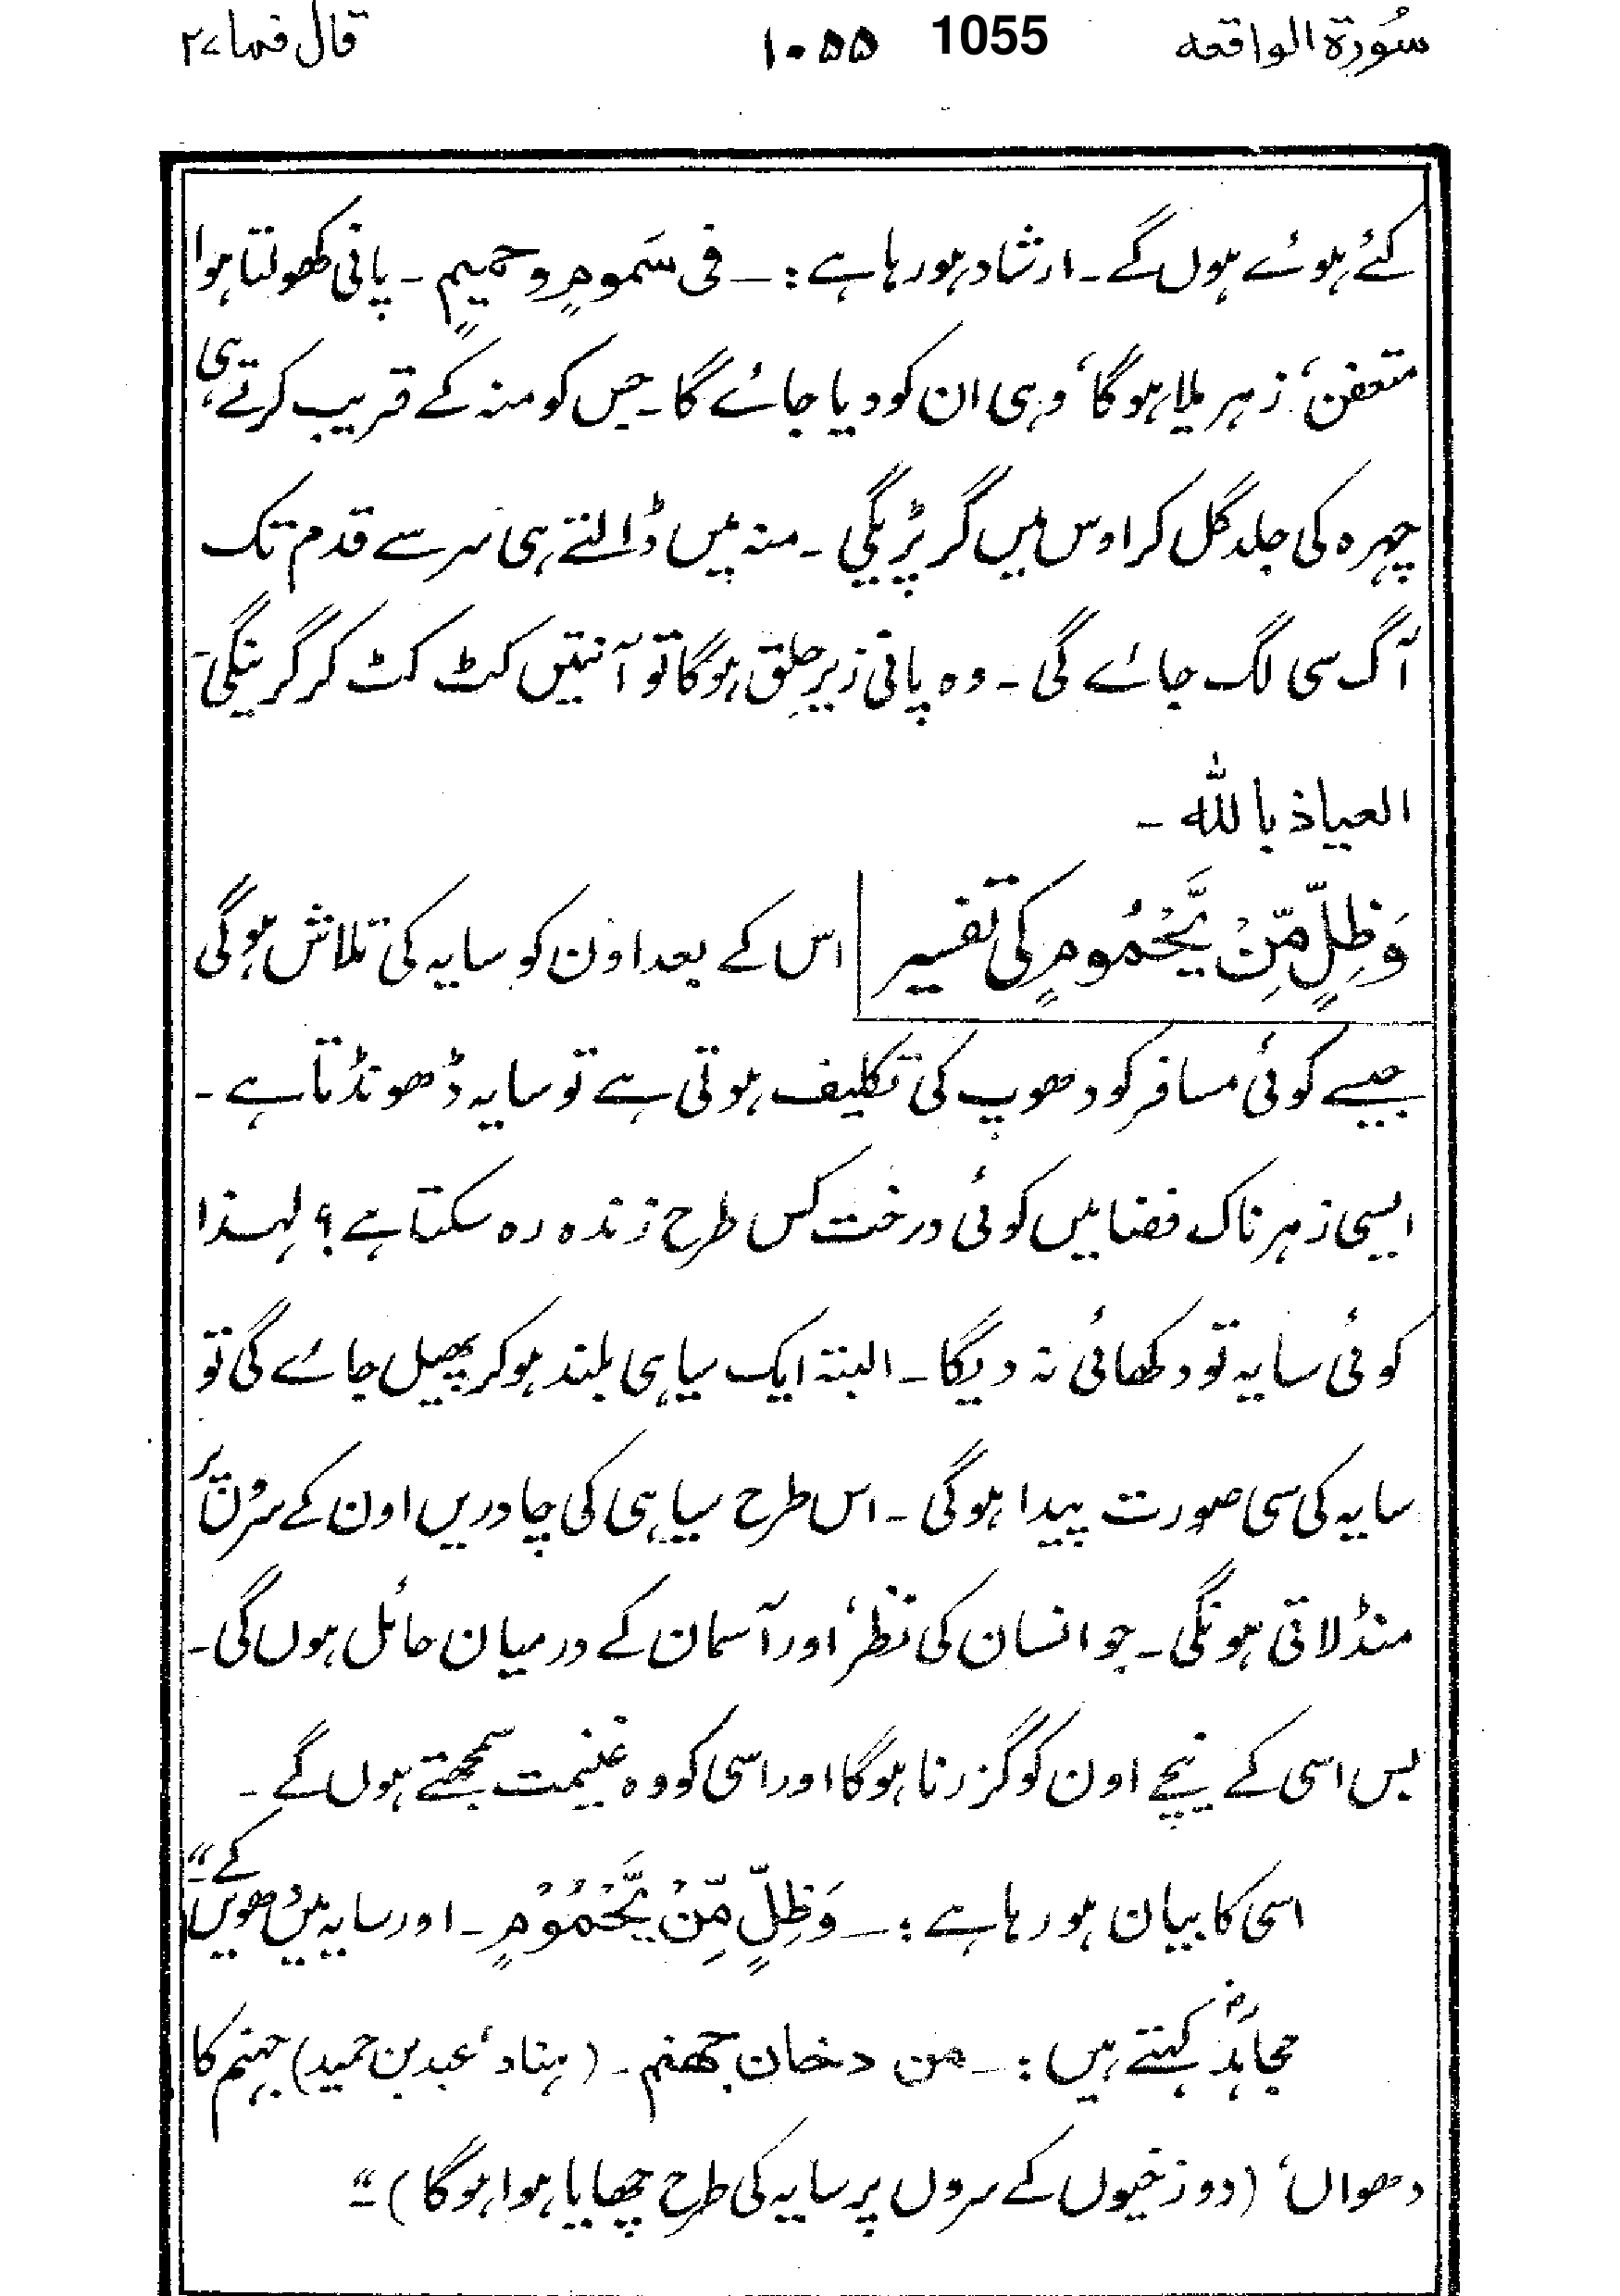 سُورة الواقعه 1055 ۱۰۵۵ قال فما ۲۷
کئے ہوئے ہوں گے۔ ارشاد ہورہا ہے :۔ فی سَمومٍ وحمیمٍ ۔ پانی کھولتا ہوا
متعفن، زہریلا ہوگا، وہی ان کو دیا جائے گا۔ جس کو منہ کے قریب کرتے ہی
چہرہ کی جلد گل کر اوس میں گر پڑیگی ۔ منہ میں ڈالتے ہی سر سے قدم تک
آگ سی لگ جائے گی ۔ وہ پانی زیرِ حلق ہوگا تو آنتیں کٹ کٹ کر گرینگی۔
العیاذ باللہ ۔
وَظِلٍّ مِّنْ یَّحْمُومٍ کی تفسیر اس کے بعد اون کو سایہ کی تلاش ہوگی
جیسے کوئی مسافر کو دھوپ کی تکلیف ہوتی ہے تو سایہ ڈھونڈتا ہے ۔
ایسی زہرناک فضا میں کوئی درخت کس طرح زندہ رہ سکتا ہے ؟ لہذا
کوئی سایہ تو دکھائی نہ دیگا ۔ البتہ ایک سیاہی بلند ہوکر پھیل جائے گی تو
سایہ کی سی صورت پیدا ہوگی ۔ اس طرح سیاہی کی چادریں اون کے سروں پر
منڈلاتی ہونگی ۔ جو انسان کی نظر، اور آسمان کے درمیان حائل ہوں گی ۔
بس اسی کے نیچے اون کو گزرنا ہوگا اور اسی کو وہ غنیمت سمجھتے ہوں گے ۔
اسی کا بیان ہورہا ہے :۔ وَظِلٍّ مِّنْ یَّحْمُوْمٍ ۔ اور سایہ میں دھویں کے۔"
مجاہدؒ کہتے ہیں :۔ من دخان جھنم ۔ (ہناد، عبد بن حمید) جہنم کا
دھواں، (دوزخیوں کے سروں پر سایہ کی طرح چھایا ہوا ہوگا)۔"